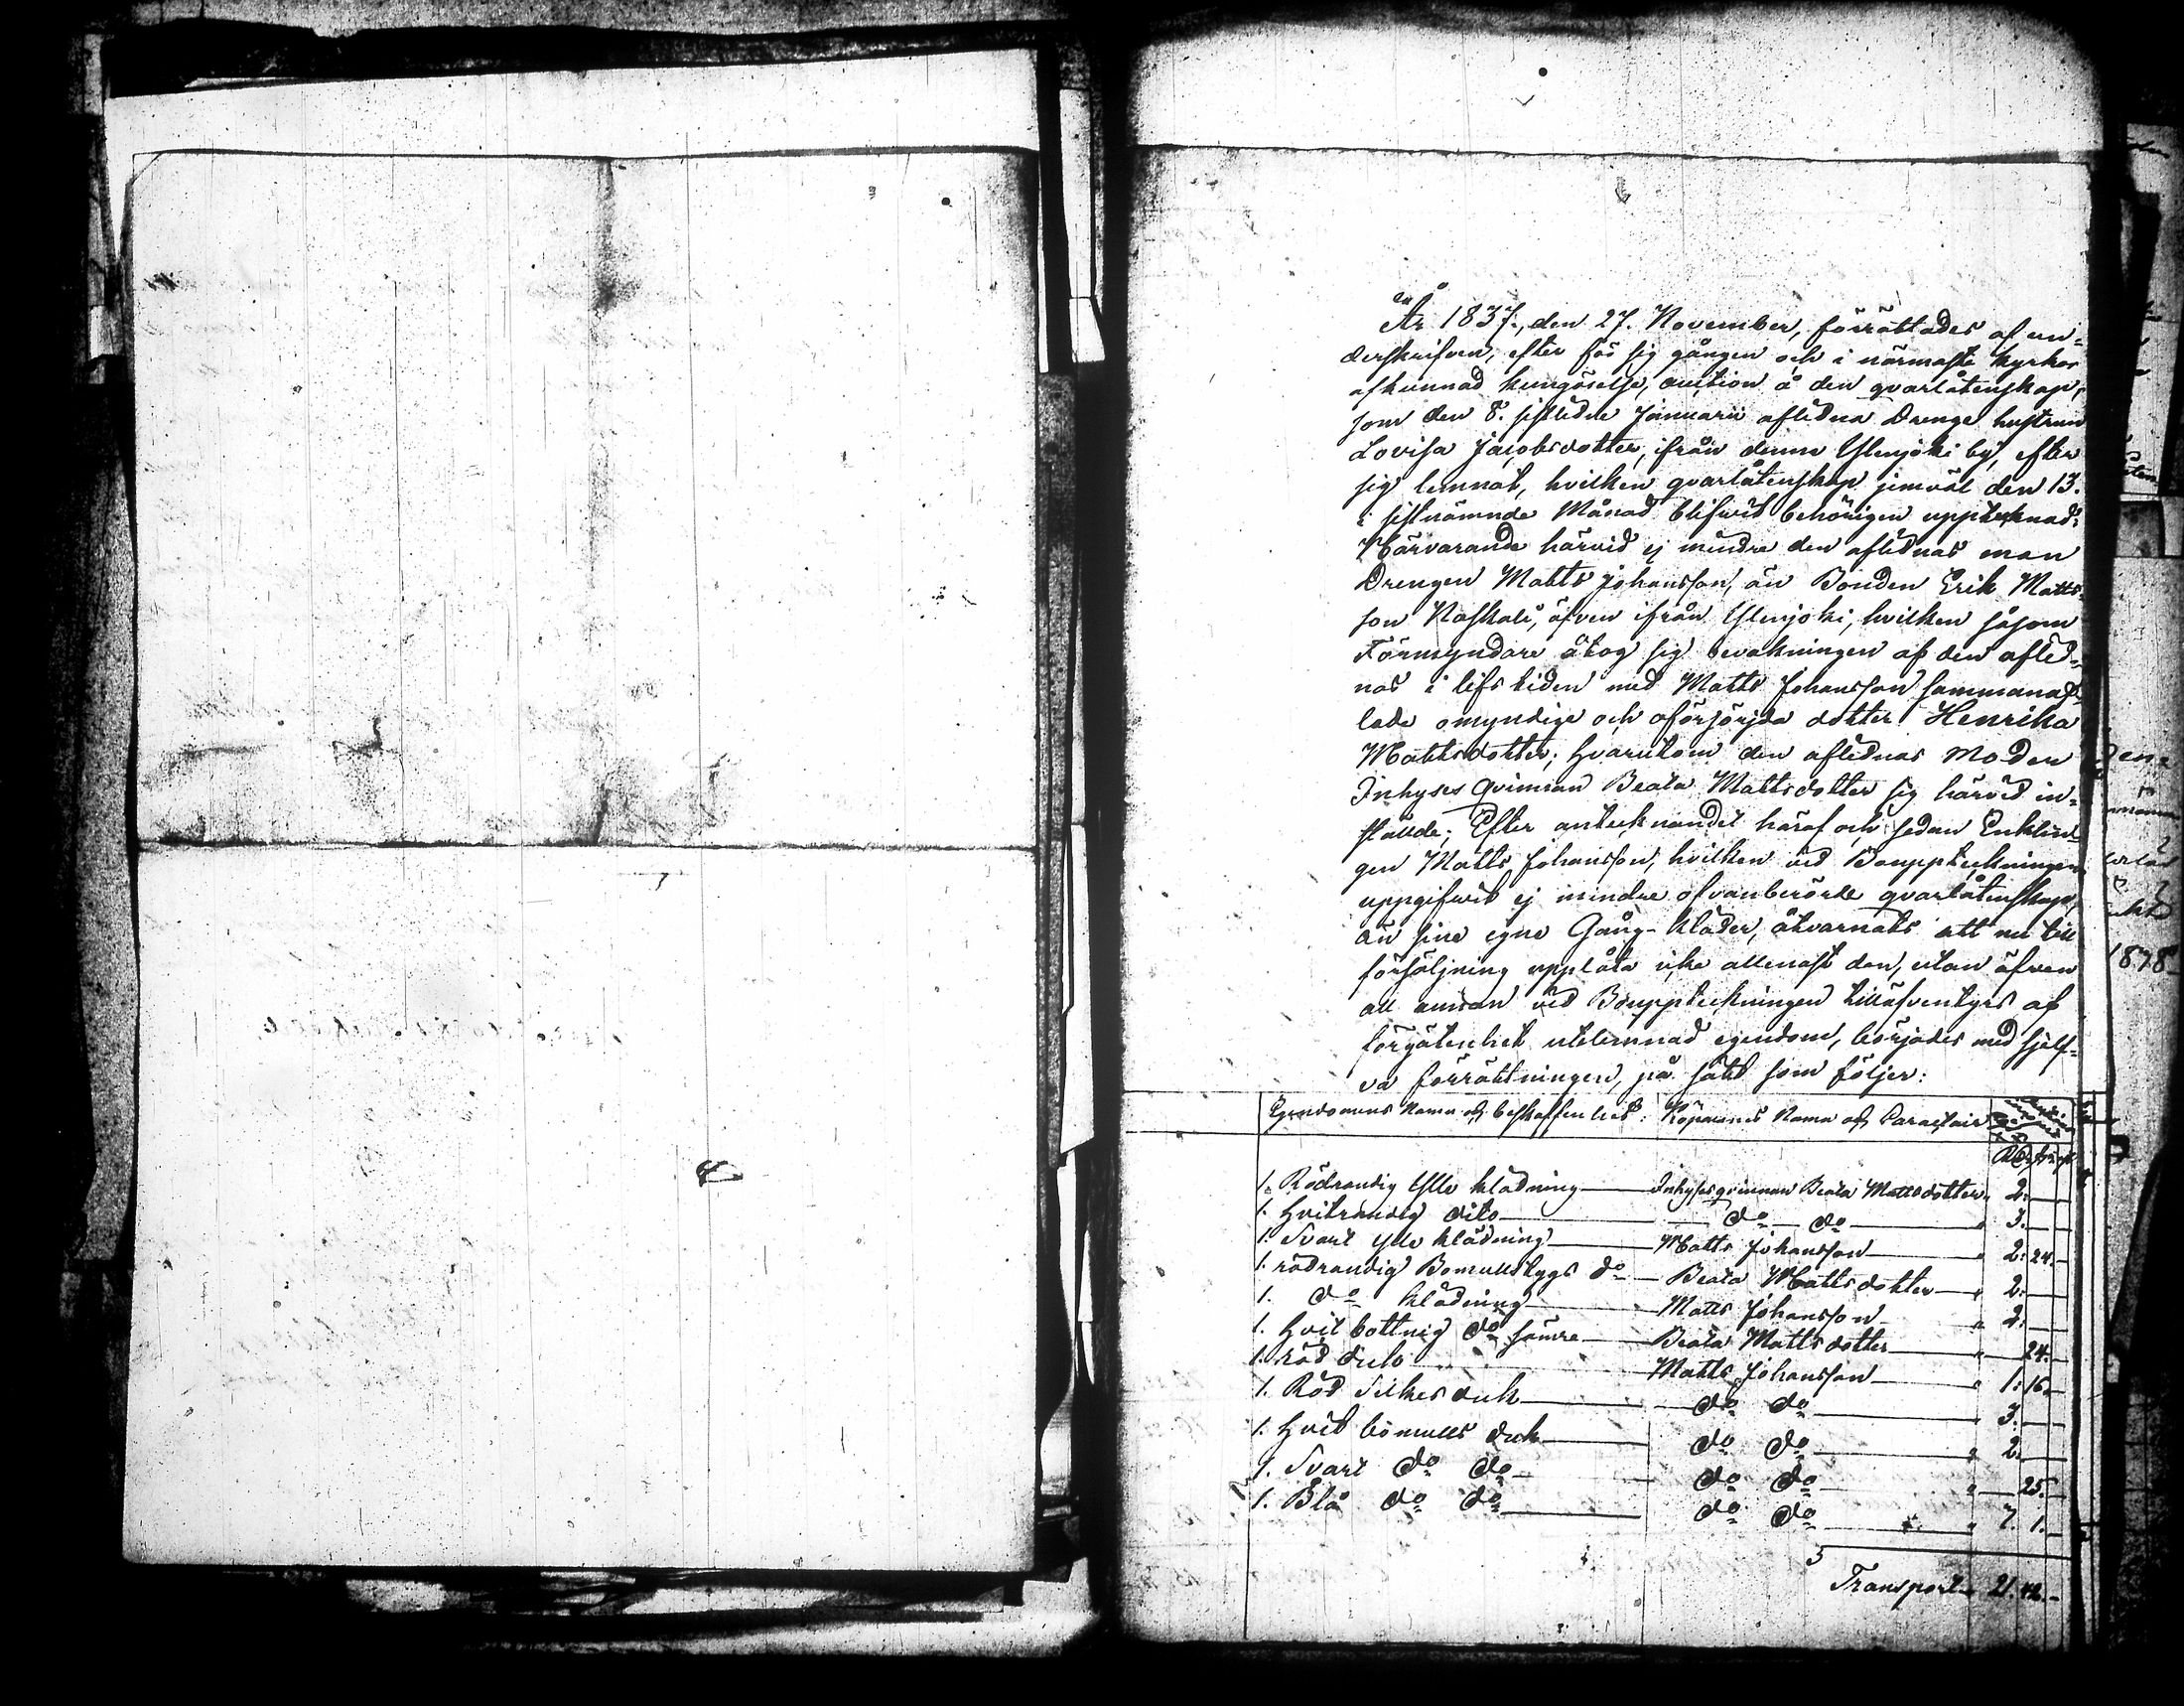 År 1837, den 27. November, förrättades af un-
derskrifven, efter för sig gången och i närmaste kyrkor
afkunnad kungörelse, auction å den qvarlåtenskap,
som den 8. sistledne Januarii aflidna Drenge hustrun
Lovisa Jacobsdotter, ifrån denne Ylenjoki by, efter
sig lemnat, hvilken qvarlåtenskap jemväl den 13.
i sistnämnde Månad blifwit behörigen upptecknad:
Närvarande härvid ej mindre den aflidnas man
Drengen Matts Johansson, än Bonden Erik Matts-
son Kaskali, äfven ifrån Ylenjoki, hvilken såsom
Förmyndare åtog sig bevakningen af den aflid-
nas i lifstiden med Matts Johansson sammanaf-
lade omyndige och oförsörjda dotter Henrika
Mattsdotter; hvarutom den aflidnas Moder
Inhyses Qvinnan Beata Mattsdotter sig härvid in-
stälde; Efter antecknandet häraf och sedan Enklin-
gen Matts Johansson, hvilken vid Bouppteckningen
uppgifwit ej mindre ofvanberörde qvarlåtenskap,
än sine egne Gång-kläder, åtvarnats att nu till
försäljning upplåta icke allenast den, utan äfven
all annan vid Bouppteckningen tilläfventyrs af
förgätenhet utelemnad egendom, börjades med sjelf-
va förrättningen, på sätt som följer:
Egendomens Namn och beskaffenhet. Köparenes Namn och Caractair
1. Rödrandig Ylle klädning Inhysesqvinnan Beata Mattsdotter 2.
1. Hvitrandig dito do do 3.
1. Svart ylle klädning Matts Johansson 2. 24.
1. rödrandig Bomullstygs do Beata Mattsdotter 2.
1. do klädning Matts Johansson 2.
1. Hvit bottnig do sämre Beata Mattsdotter 24.
1. röd dito Matts Johansson 1. 16.
1. Röd Silkes duk do do 3.
1. Hvit bomulls duk do do 2.
1. Svart do do do do 25.
1. Blå do do do do 7. 1.
Transport 21. 42.
1838